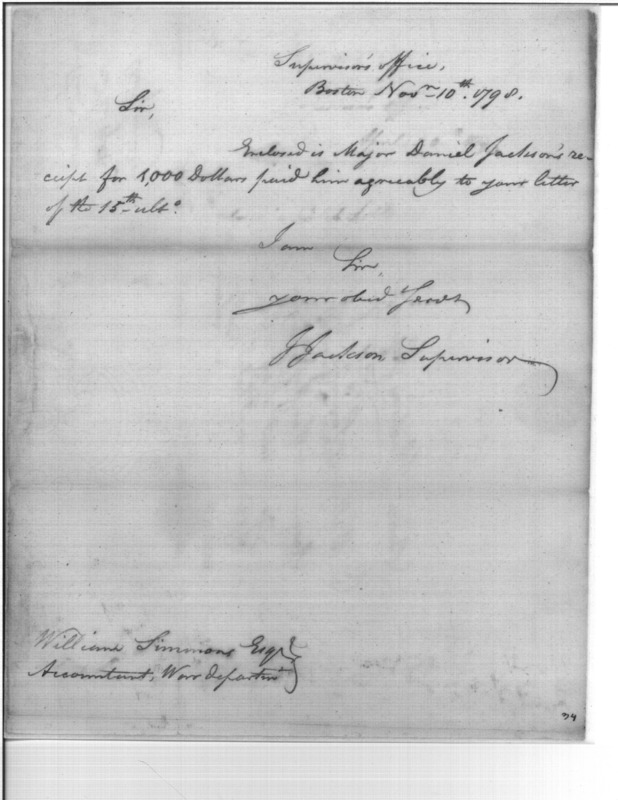 Supervisor's office,
Boston Novr 10th. 1798.
Sir,
Enclosed is Major Daniel Jackson's re-
ceipt for 1,000 Dollars paid him agreeably to your letter
of the 15th ulto.
I am
Sir,
your obed Servt
J Jackson Supervisor
William Simmons Esqr
Accountant, War departmt